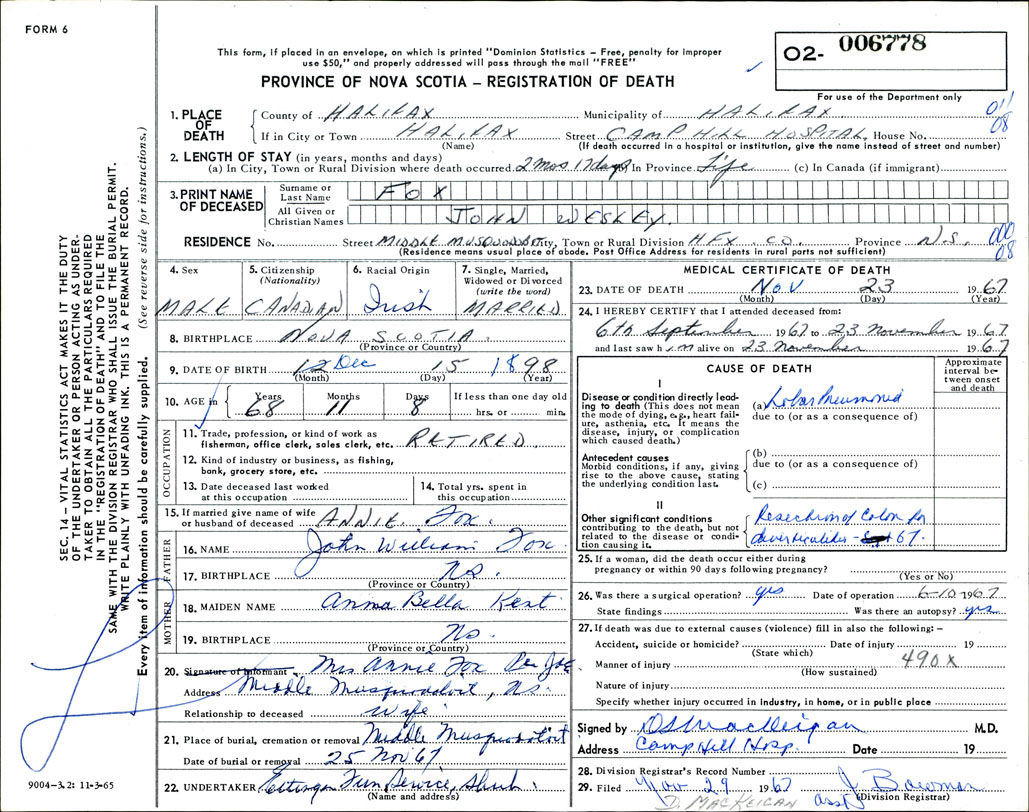 FORM 6
This form, if placed in an envelope, on which is printed "Dominion Statistics – Free, penalty for improper
use $50," and properly addressed will pass through the mail "FREE"
PROVINCE OF NOVA SCOTIA – REGISTRATION OF DEATH
O2- 006778
For use of the Department only
1. PLACE OF DEATH
County of HALIFAX Municipality of HALIFAX 011
If in City or Town HALIFAX Street CAMP HILL HOSPITAL House No. 08
(Name) (If death occurred in a hospital or institution, give the name instead of street and number)
2. LENGTH OF STAY (in years, months and days)
(a) In City, Town or Rural Division where death occurred 2 mos 17 days (b) In Province Life (c) In Canada (if immigrant)
3. PRINT NAME OF DECEASED
Surname or Last Name FOX
All Given or Christian Names JOHN WESLEY.
RESIDENCE No. Street MIDDLE City, Town or Rural Division HFX. CO. Province N.S. 000 08
(Residence means usual place of abode. Post Office Address for residents in rural parts not sufficient)
4. Sex
MALE
5. Citizenship
(Nationality)
CANADIAN
6. Racial Origin
Irish
7. Single, Married,
Widowed or Divorced
(write the word)
MARRIED
8. BIRTHPLACE NOVA SCOTIA.
(Province or Country)
9. DATE OF BIRTH 12 Dec 15 1898
(Month) (Day) (Year)
10. AGE in Years 68 Months 11 Days 8 If less than one day old
hrs. or min.
OCCUPATION
11. Trade, profession, or kind of work as
fisherman, office clerk, sales clerk, etc. RETIRED
12. Kind of industry or business, as fishing,
bank, grocery store, etc.
13. Date deceased last worked
at this occupation
14. Total yrs. spent in
this occupation
15. If married give name of wife
or husband of deceased ANNIE. Fox.
FATHER
16. NAME John William Fox
17. BIRTHPLACE NS.
(Province or Country)
MOTHER
18. MAIDEN NAME Anna Bella Kent
19. BIRTHPLACE NS.
(Province or Country)
20. Signature of Informant Mrs Annie Fox
Address Middle Musquodoboit, NS.
Relationship to deceased wife
21. Place of burial, cremation or removal Middle Musquodoboit
Date of burial or removal 25 Nov 67
22. UNDERTAKER Ettinger Fun Service,
(Name and address)
MEDICAL CERTIFICATE OF DEATH
23. DATE OF DEATH NOV 23 1967
(Month) (Day) (Year)
24. I HEREBY CERTIFY that I attended deceased from:
6th September 1967 to 23 November 1967
and last saw him alive on 23 November 1967
CAUSE OF DEATH
Approximate
interval be-
tween onset
and death
I
Disease or condition directly lead-
ing to death (This does not mean
the mode of dying, e.g., heart fail-
ure, asthenia, etc. It means the
disease, injury, or complication
which caused death.)
(a) Lobar Pneumonia
due to (or as a consequence of)
Antecedent causes
Morbid conditions, if any, giving
rise to the above cause, stating
the underlying condition last.
(b)
due to (or as a consequence of)
(c)
II
Other significant conditions
contributing to the death, but not
related to the disease or condi-
tion causing it.
Resection of Colon for
diverticulitis - Sept 67.
25. If a woman, did the death occur either during
pregnancy or within 90 days following pregnancy?
(Yes or No)
26. Was there a surgical operation? yes Date of operation 6-10 1967
State findings Was there an autopsy? yes
27. If death was due to external causes (violence) fill in also the following: –
Accident, suicide or homicide? Date of injury 19
(State which)
Manner of injury 490X
(How sustained)
Nature of injury
Specify whether injury occurred in industry, in home, or in public place
Signed by M.D.
Address Camp Hill Hosp. Date 19
28. Division Registrar's Record Number
29. Filed Nov 29 1967 J. Bowman
D. MACKEICAN asst (Division Registrar)
SEC. 14 – VITAL STATISTICS ACT MAKES IT THE DUTY
OF THE UNDERTAKER OR PERSON ACTING AS UNDER-
TAKER TO OBTAIN ALL THE PARTICULARS REQUIRED
IN THE "REGISTRATION OF DEATH" AND TO FILE THE
SAME WITH THE DIVISION REGISTRAR WHO SHALL ISSUE THE BURIAL PERMIT.
WRITE PLAINLY WITH UNFADING INK. THIS IS A PERMANENT RECORD.
Every item of information should be carefully supplied. (See reverse side for instructions.)
9004-3.2: 11-3-65